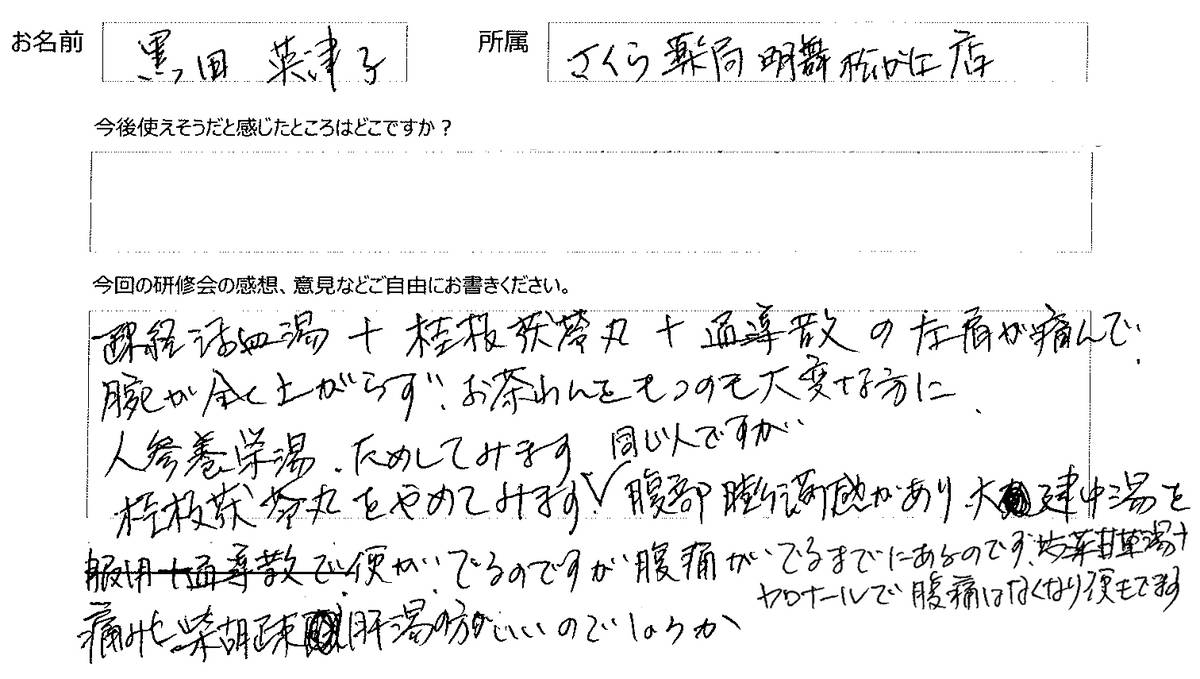 お名前 黒田 英津子 所属 さくら薬局明舞松が丘店
今後使えそうだと感じたところはどこですか？
今回の研修会の感想、意見などご自由にお書きください。
疎経活血湯＋桂枝茯苓丸＋通導散の左肩が痛んで、
腕が全く上がらず、お茶わんをもつのも大変な方に、
人参養栄湯、ためしてみます 同じ人ですが
桂枝茯苓丸をやめてみます。腹部膨満感があり大建中湯を
服用＋通導散で、便が、でるのですが腹痛がでるまでにあるのです、芍薬甘草湯＋
カロナールで腹痛はなくなり便もでます
痛みも柴胡疎肝湯の方がいいのでしょうか